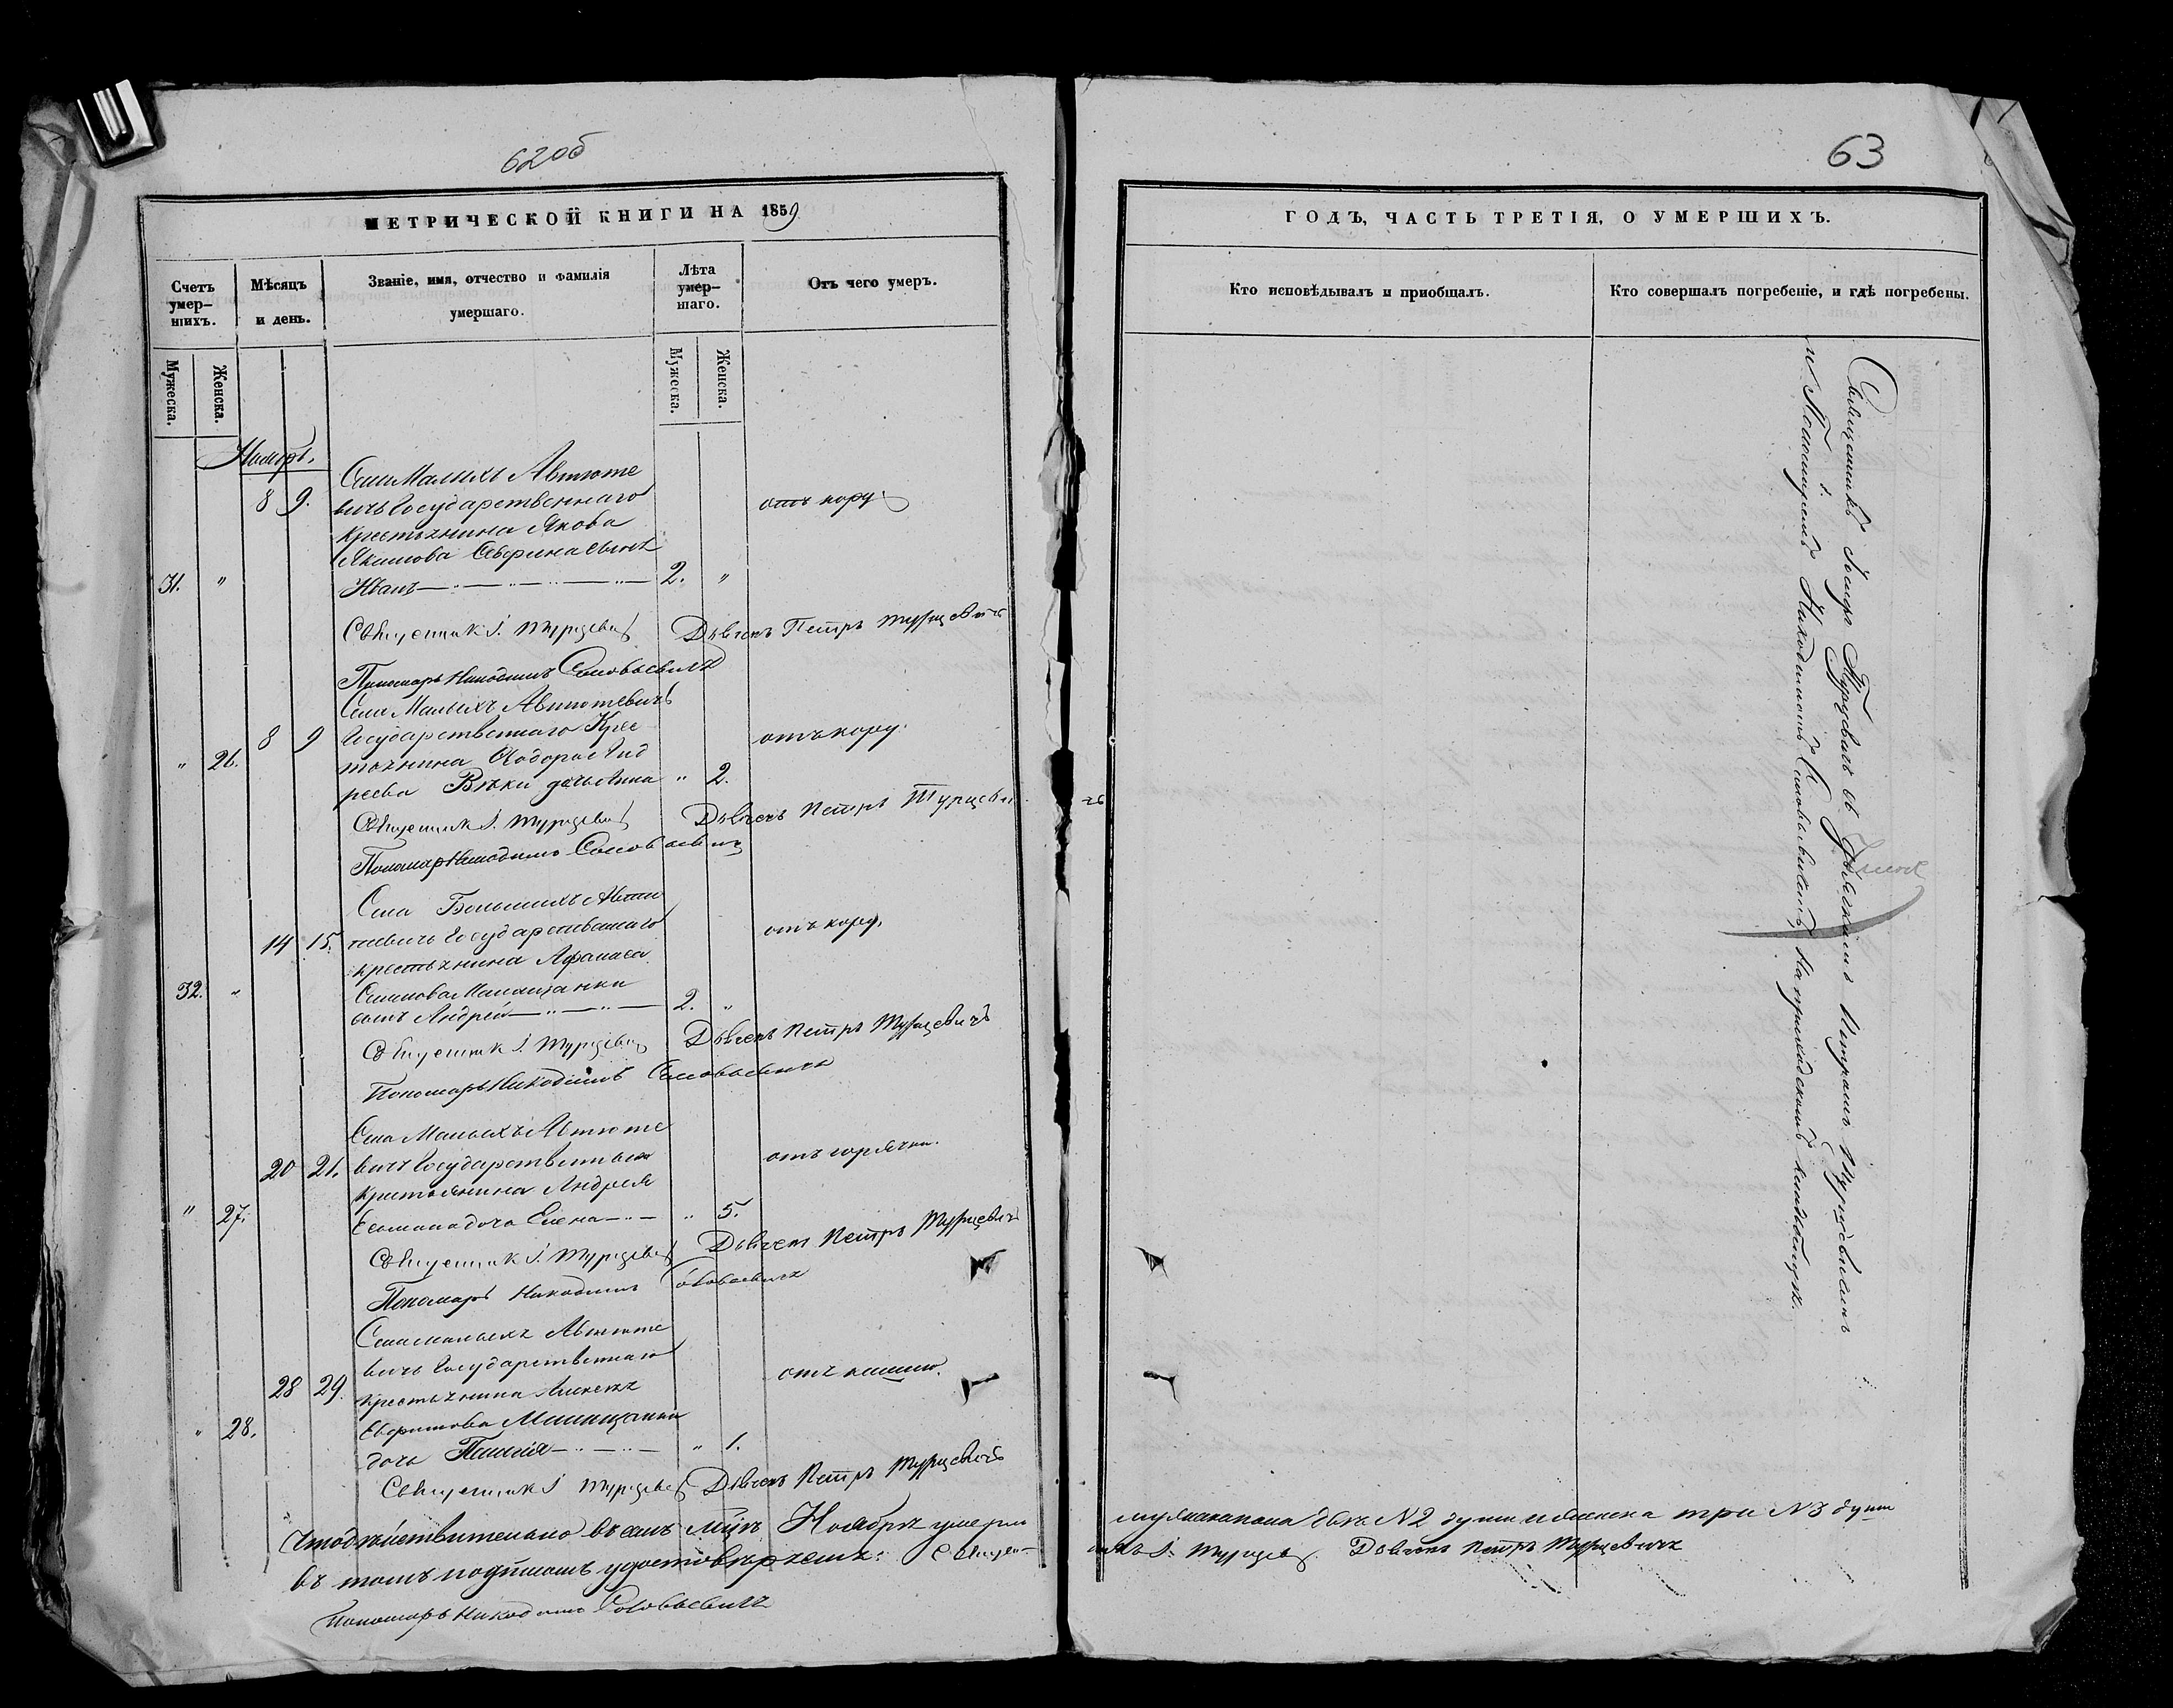 62 об
МЕТРИЧЕСКОЙ КНИГИ НА 1859
Счетъ умершихъ.
Мѣсяцъ и день.
Званіе, имя, отчество и фамилія умершаго.
Лѣта умершаго.
Отъ чего умеръ.
Мужеска.
Женска.
Мужеска.
Женска.
Ноябрь.
Села Малыхъ Автюте
8 9. вичъ Государственнаго отъ кору
крестьянина Якова
Якимова сынъ
31. " Иванъ 2. "
Священник І. Турцевич Дьячекъ Петръ Турцевичъ
Пономарь Никодимъ Соловьевичъ
Села Малыхъ Автютевичъ
8 9 Государственнаго Крес отъ кору.
" 26. тьянина Ѳодора Анд
реева дочь Анна " 2.
Священник І. Турцевич Дьячекъ Петръ Турцевичъ
Пономарь Никодимъ Соловьевичъ
Села Большихъ Автю
14 15. тевичъ Государственнаго отъ кору.
крестьянина Афанаса
32. " Семенова
сынъ Андрей 2. "
Священник І. Турцевич Дьячекъ Петръ Турцевичъ
Пономарь Никодимъ Соловьевичъ
Села Малыхъ Автюте
20 21. вичъ Государственнаго отъ горячки.
крестьянина Андрея
" 27. дочь Елена " 5.
Священник І. Турцевич Дьячекъ Петръ Турцевичъ
Пономарь Никодимъ Соловьевичъ
Села Малыхъ Автюте
вичъ Государственнаго
28 29. крестьянина отъ кашлю.
" 28.
дочь " 1.
Священник І Турцевич Дьячекъ Петръ Турцевичъ
Что дѣйствительно въ семъ м-цѣ Ноябрѣ умерли
въ томъ подписомъ удостовѣряемъ: Священ-
Пономарь Никодимъ Соловьевичъ
63
ГОДЪ, ЧАСТЬ ТРЕТІЯ, О УМЕРШИХЪ.
Кто исповѣдывалъ и пріобщалъ.
Кто совершалъ погребеніе, и гдѣ погребены.
Священникъ Іосифъ Турцевичъ съ Дьячкомъ Петромъ Турцевичемъ
и Пономаремъ Никодимомъ Соловьевичемъ на приходскомъ кладбищѣ.
мужеска пола двѣ №2 души и женска три №3 души
никъ І. Турцевич. Дьячекъ Петръ Турцевичъ